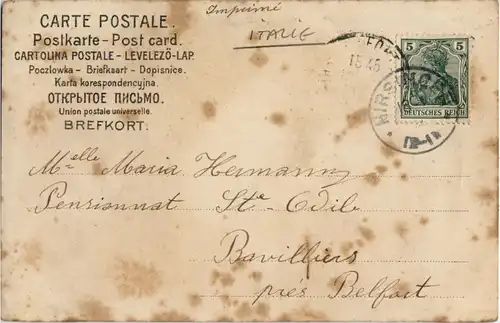 Imprimé
ITALIE
CARTE POSTALE.
Postkarte - Post card.
CARTOLINA POSTALE - LEVELEZŐ-LAP.
Poczlowka - Briefkaart - Dopisnice.
Karta korespondencyjna.
ОТКРЫТОЕ ПИСЬМО.
Union postale universelle.
BREFKORT.
5 5
DEUTSCHES REICH
Melle Maria Hermann
Pensionnat Ste Odile
Bavilliers
près Belfort